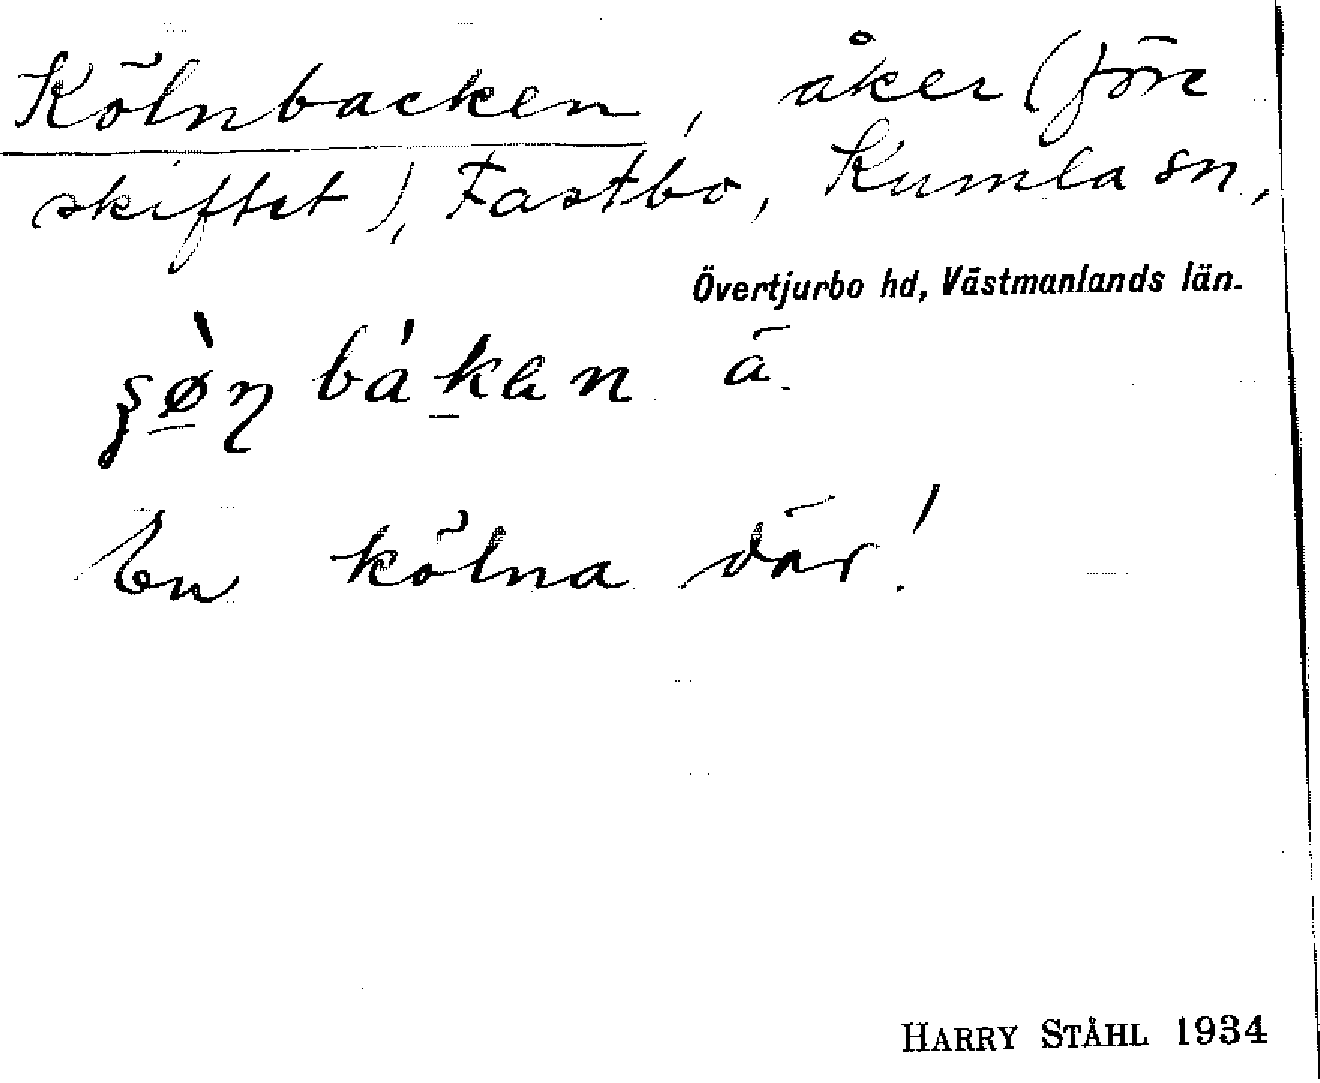 Kölnbacken, åker (före
skiftet), Fastbo, Kumla sn,
Övertjurbo hd, Västmanlands län.
ʂø̀ɳ bákan ä.
En kölna där!
HARRY STÅHL 1934